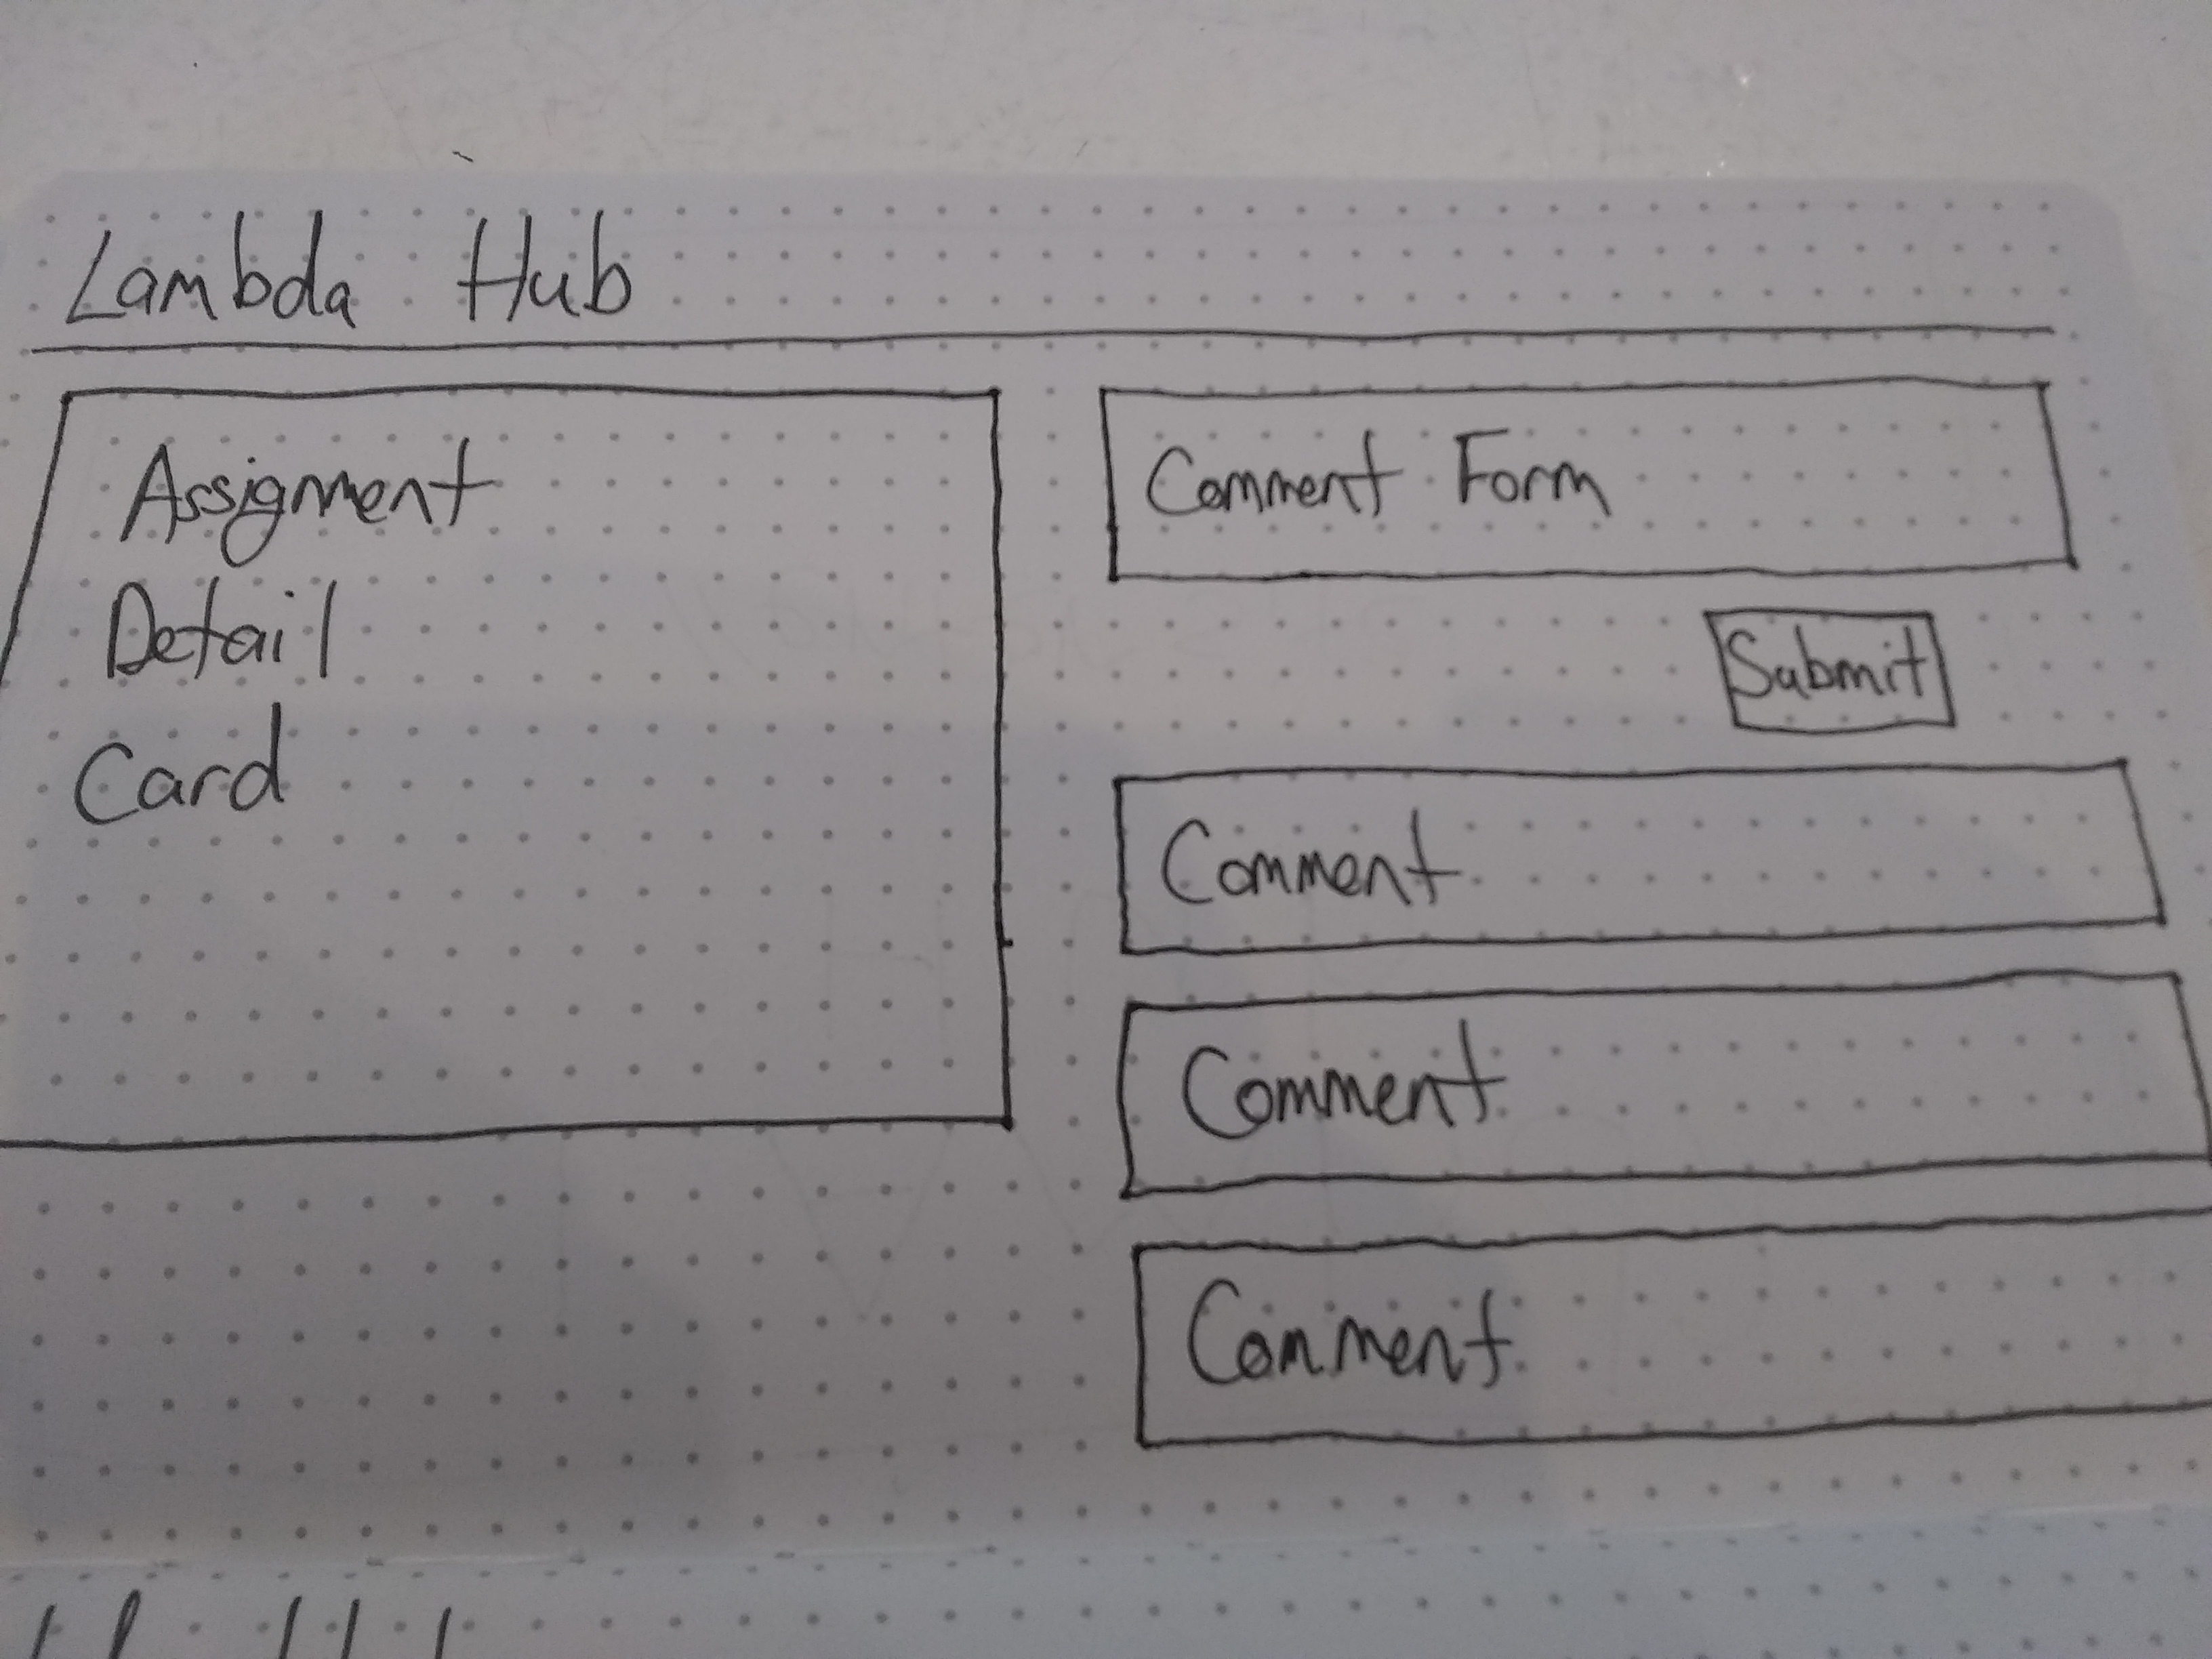 Lambda Hub
Assignment
Detail
Card
Comment Form
Submit
Comment
Comment
Comment